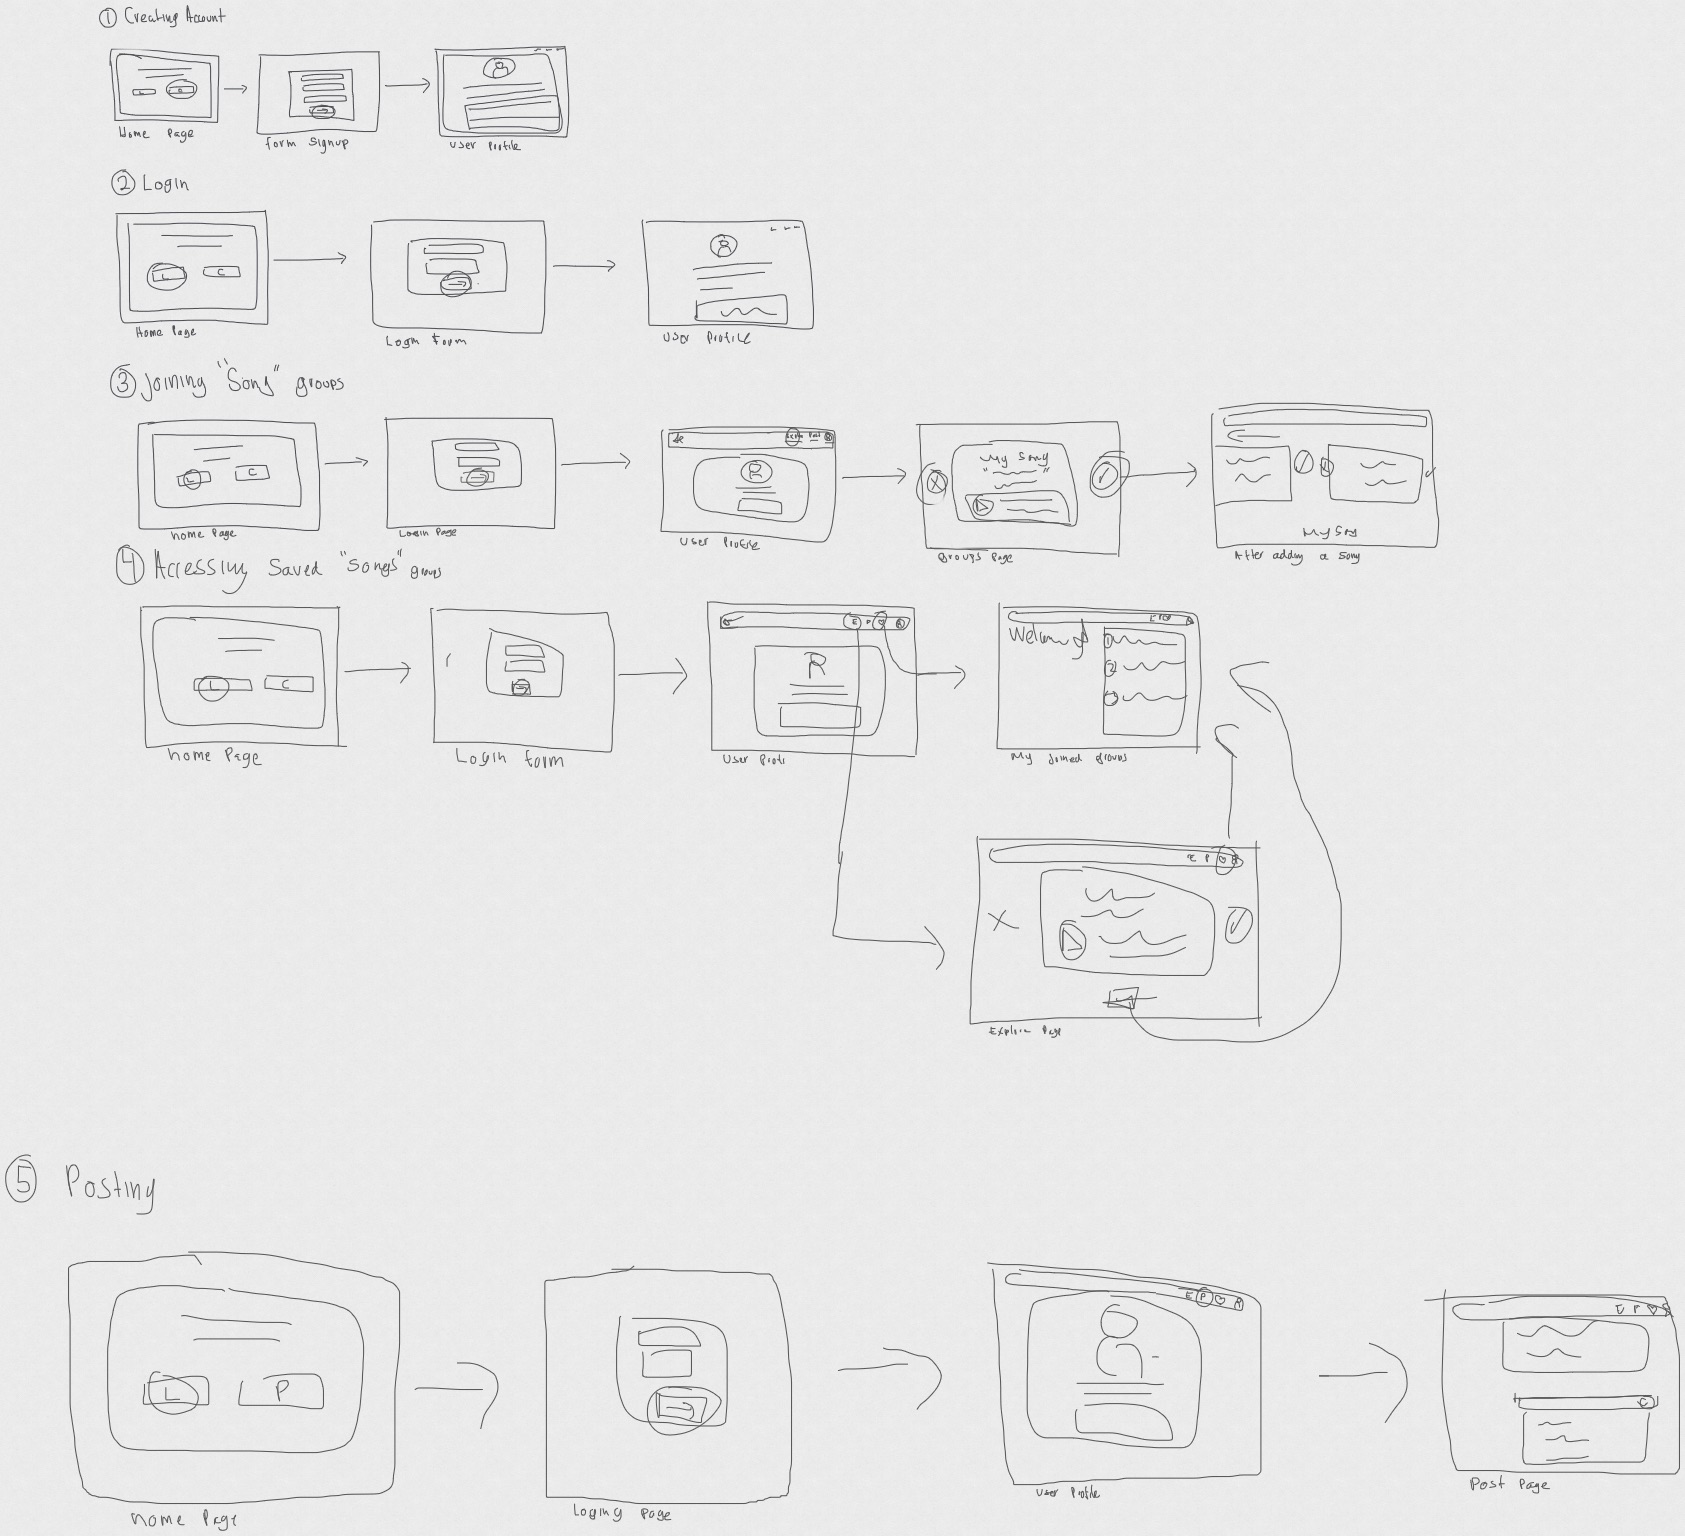 ① Creating Acount
L
C
Home Page
Form Signup
User Profile
② Login
L
C
Home Page
Login Form
User Profile
③ Joining "Song" groups
L
C
Home Page
Login Page
Post
User Profile
My Song
Groups Page
My Song
After adding a song
④ Accessing Saved "Songs" groups
L
C
Home Page
Login Form
E P
R
User Profi
Welcome
1
2
My Joined groups
E P
Explore Page
⑤ Posting
L
P
Home Page
Loging Page
E P
User Profile
E P
C
Post Page